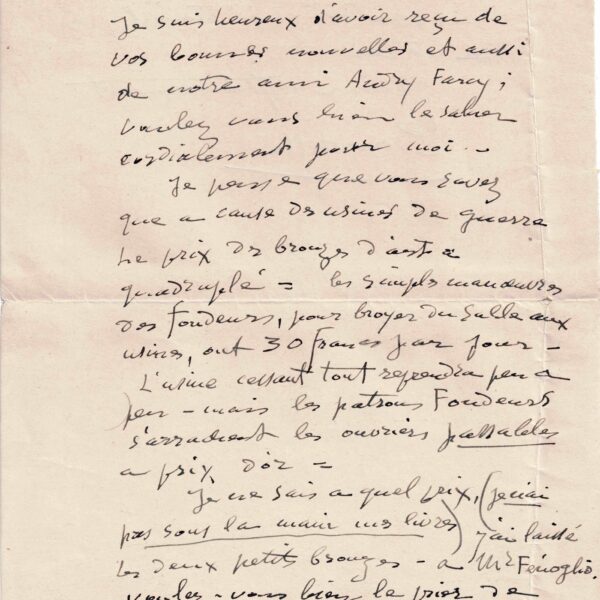 Je suis heureux d'avoir reçu de
vos bonnes nouvelles et aussi
de notre ami Andry Farcy ;
voulez vous bien le saluer
cordialement pour moi. -
Je pense que vous savez
que a cause des usines de guerre
le prix des bronzes d'art a
quadruplé = les simples manœuvres
des fondeurs, pour broyer du sable aux
usines, ont 30 francs par jour -
L'usine cessant tout reprendra peu a
peu - mais les patrons Fondeurs
s'arrachent les ouvriers passables
a prix d'or =
Je ne sais a quel prix, (je n'ai
pas sous la main mes livres) j'ai laissé
les deux petits bronzes - a Mr Fenoglio.
voulez-vous bien le prier de